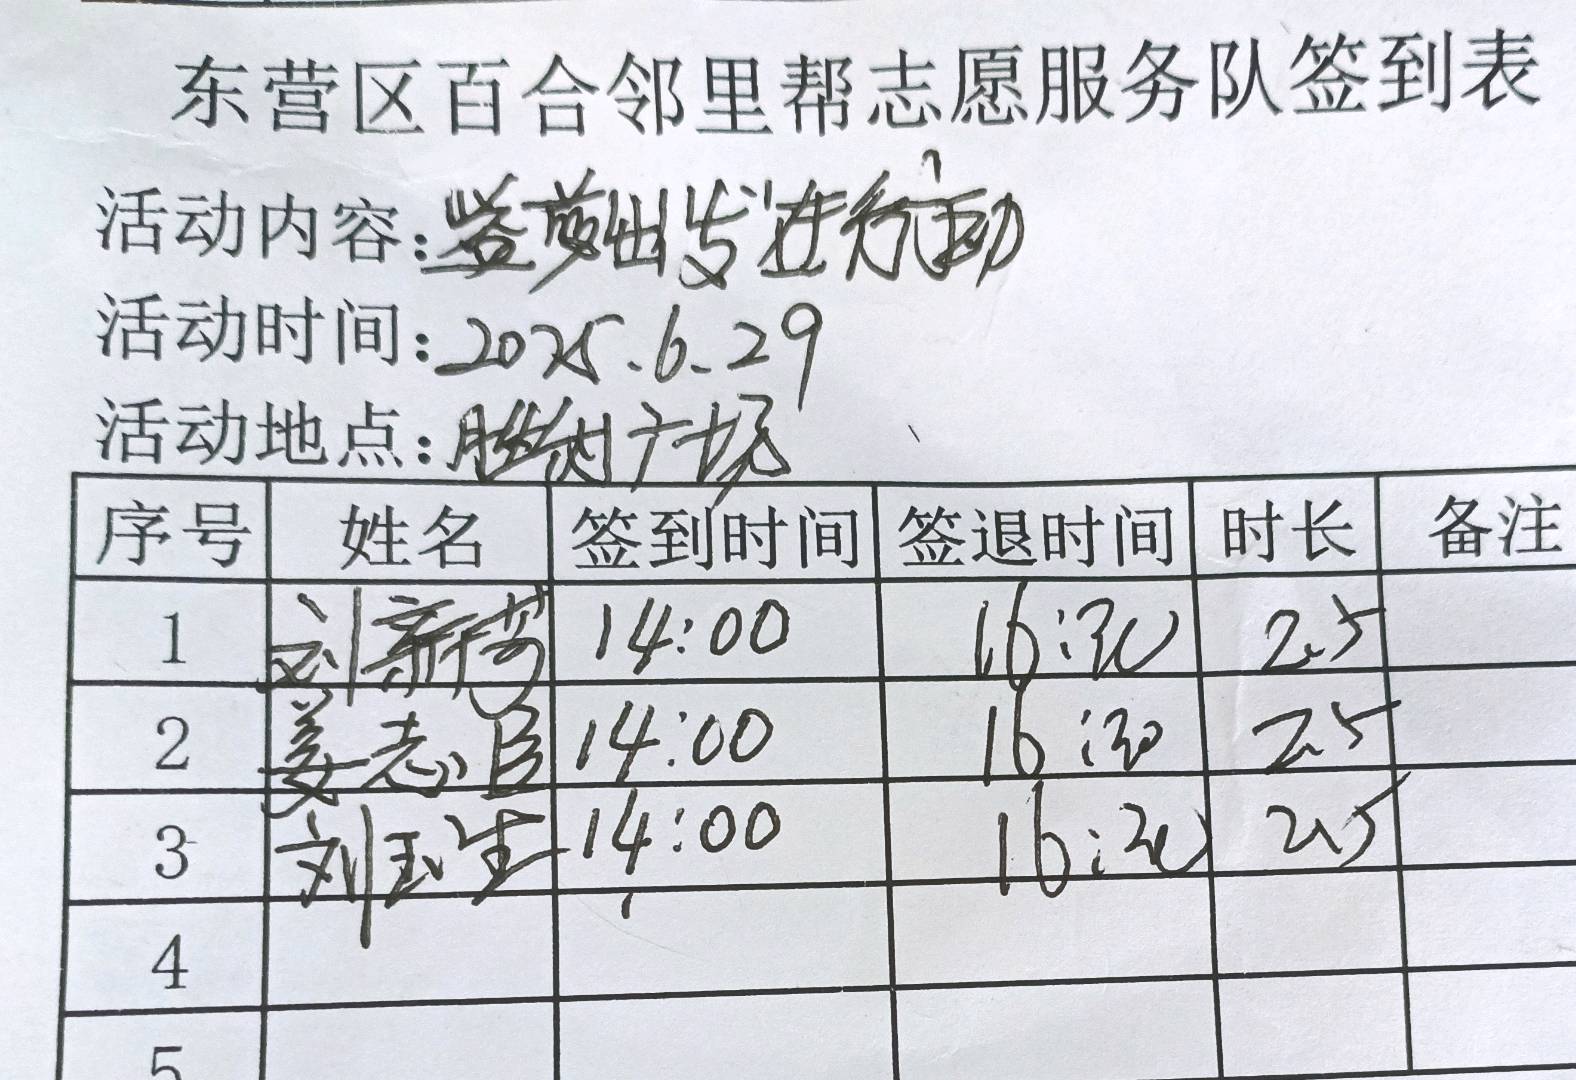 东营区百合邻里帮志愿服务队签到表
活动内容:出发进行动
活动时间:2025.6.29
活动地点:胜利广场
序号 姓名 签到时间 签退时间 时长 备注
1 刘新芳 14:00 16:30 2.5
2 姜志臣 14:00 16:30 2.5
3 刘玉生 14:00 16:30 2.5
4
5